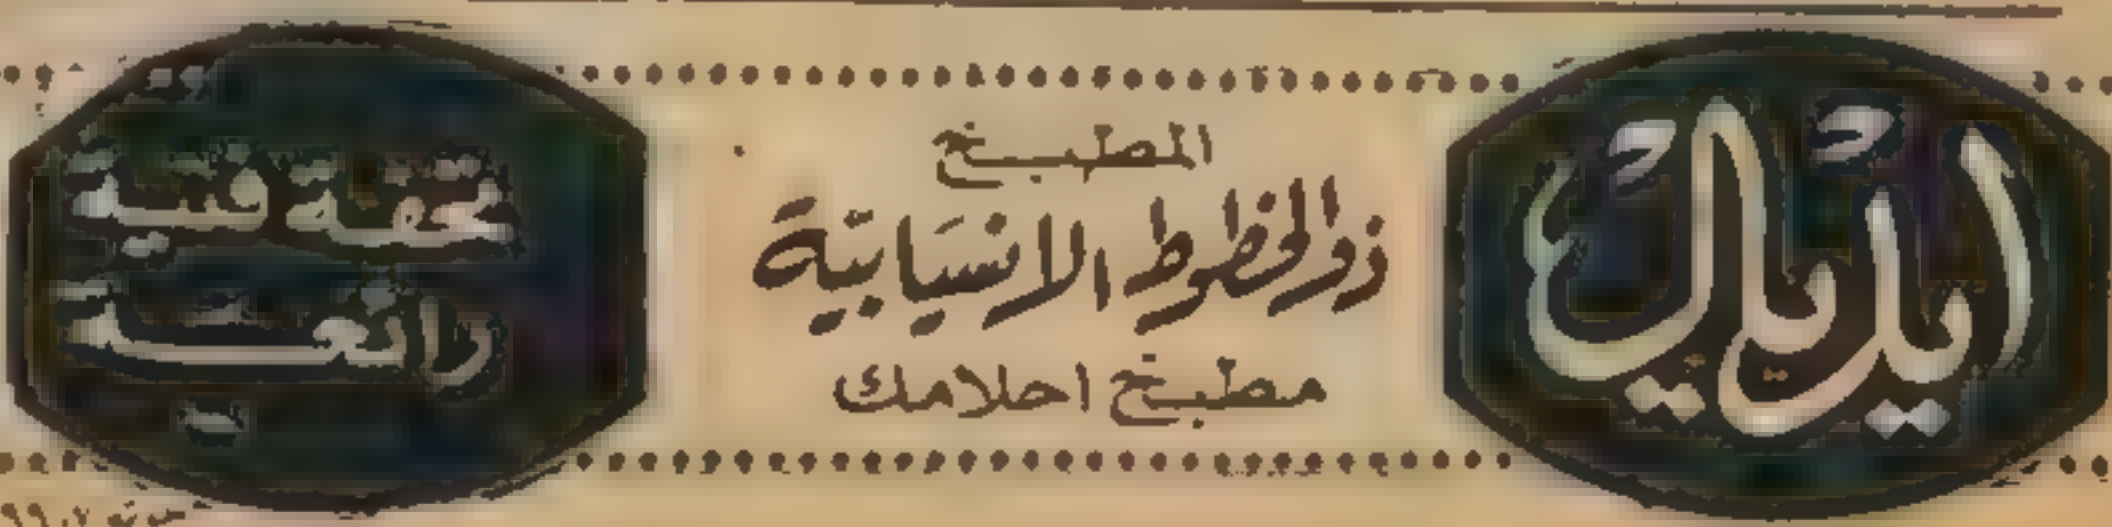 ايديال
المطبخ
ذو الخطوط الانسيابية
مطبخ احلامك
تحفة فنية
رائعة